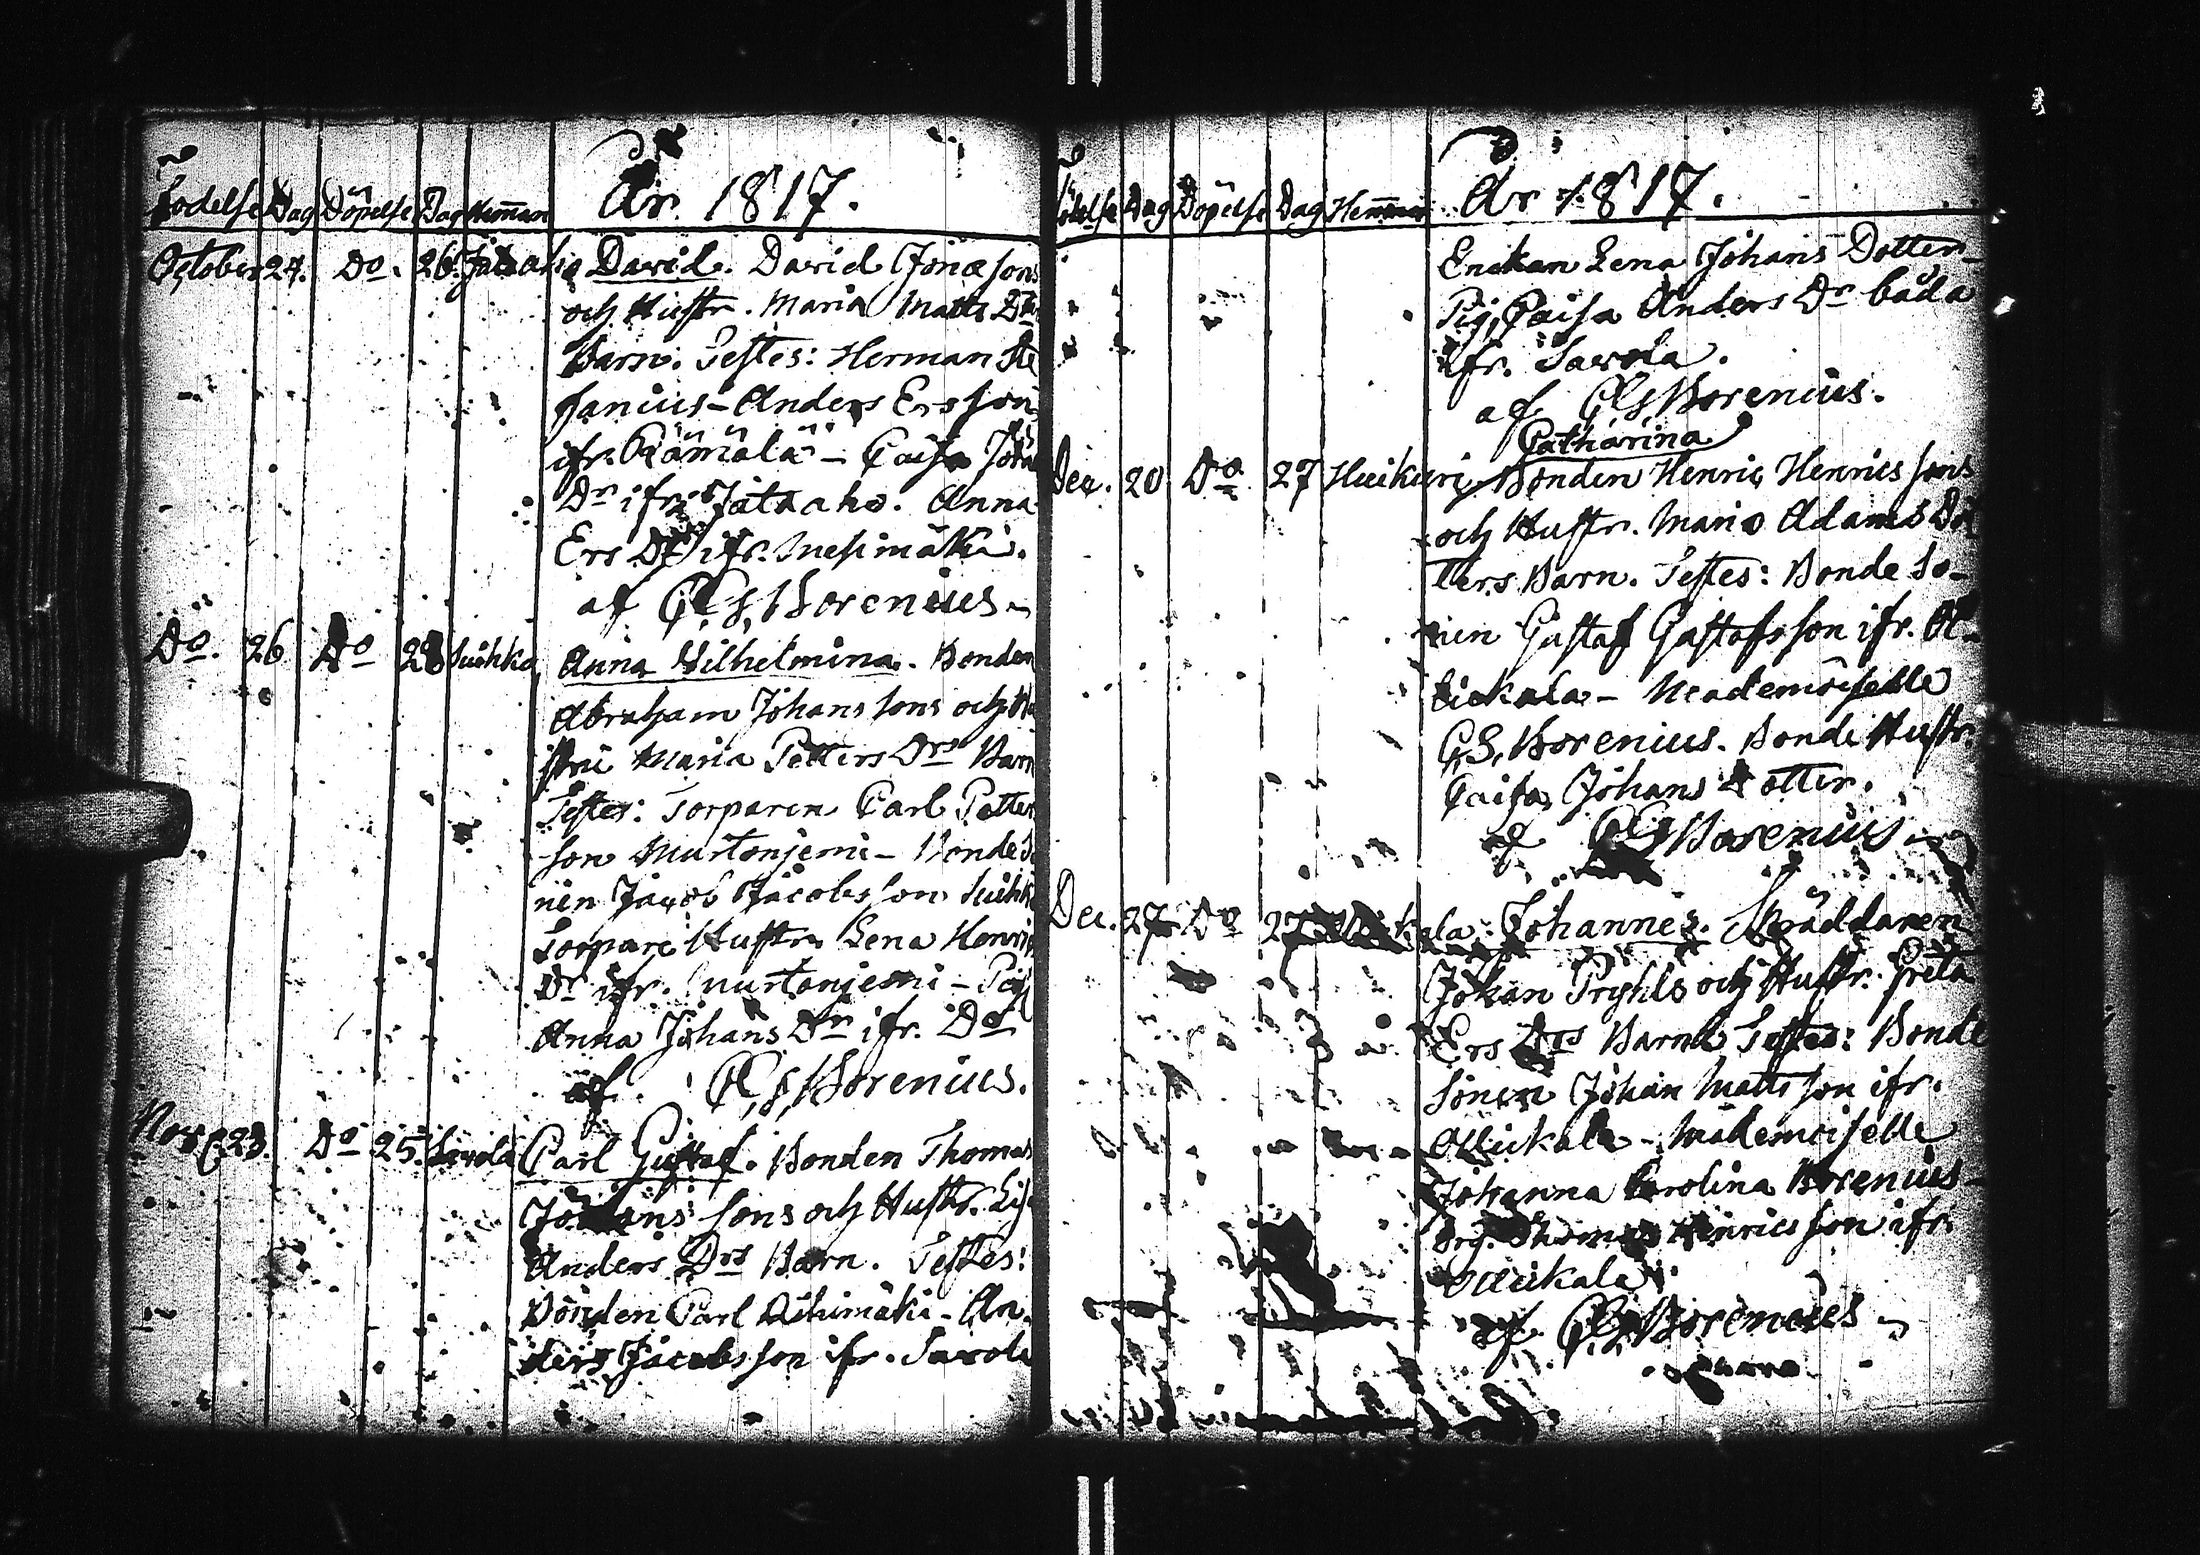 Födelse Dag Döpelse Dag Hemman År 1817.
October 24. Do. 26. Jätäaho David. David Jonæsons
och Hustr. Maria Matts Drs
Barn. Testes: Herman Ste
fanius - Anders Ersson
ifr. Rämälä - Caisa Johans
Dr ifr. Jätaaho. Anna
Ers Dr ifr. Mesimäki.
af C.G. Borenius -
Do. 26 Do 28 Suihko Anna Wilhelmina. Bonden
Abraham Johanssons och Hu
stru Maria Petters Drs Barn
Testes: Torparen Carl Petter
son Murtonjemi - Bonde So
nen Jacob Jacobsson Suihko
Torpare Hustr. Lena Henrics
Dr ifr. Murtoniemi - Pig.
Anna Johans Dr ifr. Do
af. C.G. Borenius.
Nov. 23. Do 25. Savola Carl Gustaf. Bonden Thomas
Johans sons och Hustr. Lisa
Anders Drs Barn. Testes:
Bonden Carl Riihimäki - An-
ders Jacobsson ifr. Savola
Födelse Dag Döpelse Dag Hemman År 1817.
Enckan Lena Johans Dotter -
Pig. Caisa Anders Dr båda
ifr. Savola.
af C.G. Borenius.
Catharina
Dec. 20 Do 27 Huikuri Bonden Henric Henrics sons
och Hustr. Maria Adams Dot
ters Barn. Testes: Bonde So-
nen Gustaf Gustafsson ifr.
- Mademoiselle
C.S. Borenius. Bonde Hustr.
Caisa Johans Dotter.
af C.G. Borenius -
Dec. 27 Do 27 Johannes. Skräddaren
Johan Pryhls och Hustr. Greta
Ers Drs Barn. Testes: Bonde
Sonen Johan Mattsson ifr.
Ollickala - Mademoiselle
Johanna Carolina Borenius -
Drg. Thomas Henricsson ifr.
Ollickala
af C.G. Borenius -